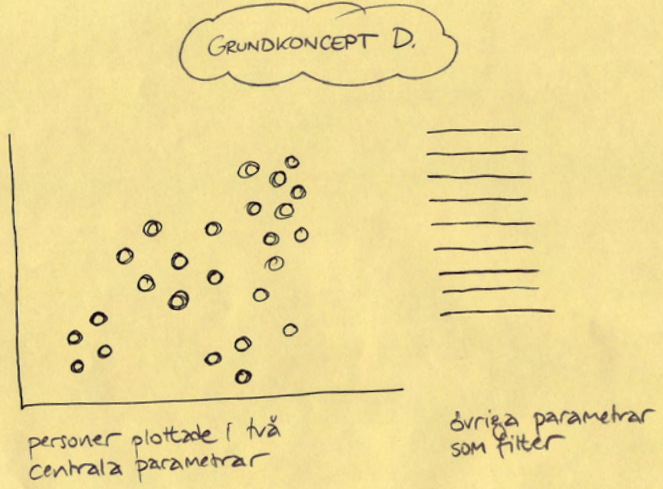 GRUNDKONCEPT D.
personer plottade i två
centrala parametrar
övriga parametrar
som filter